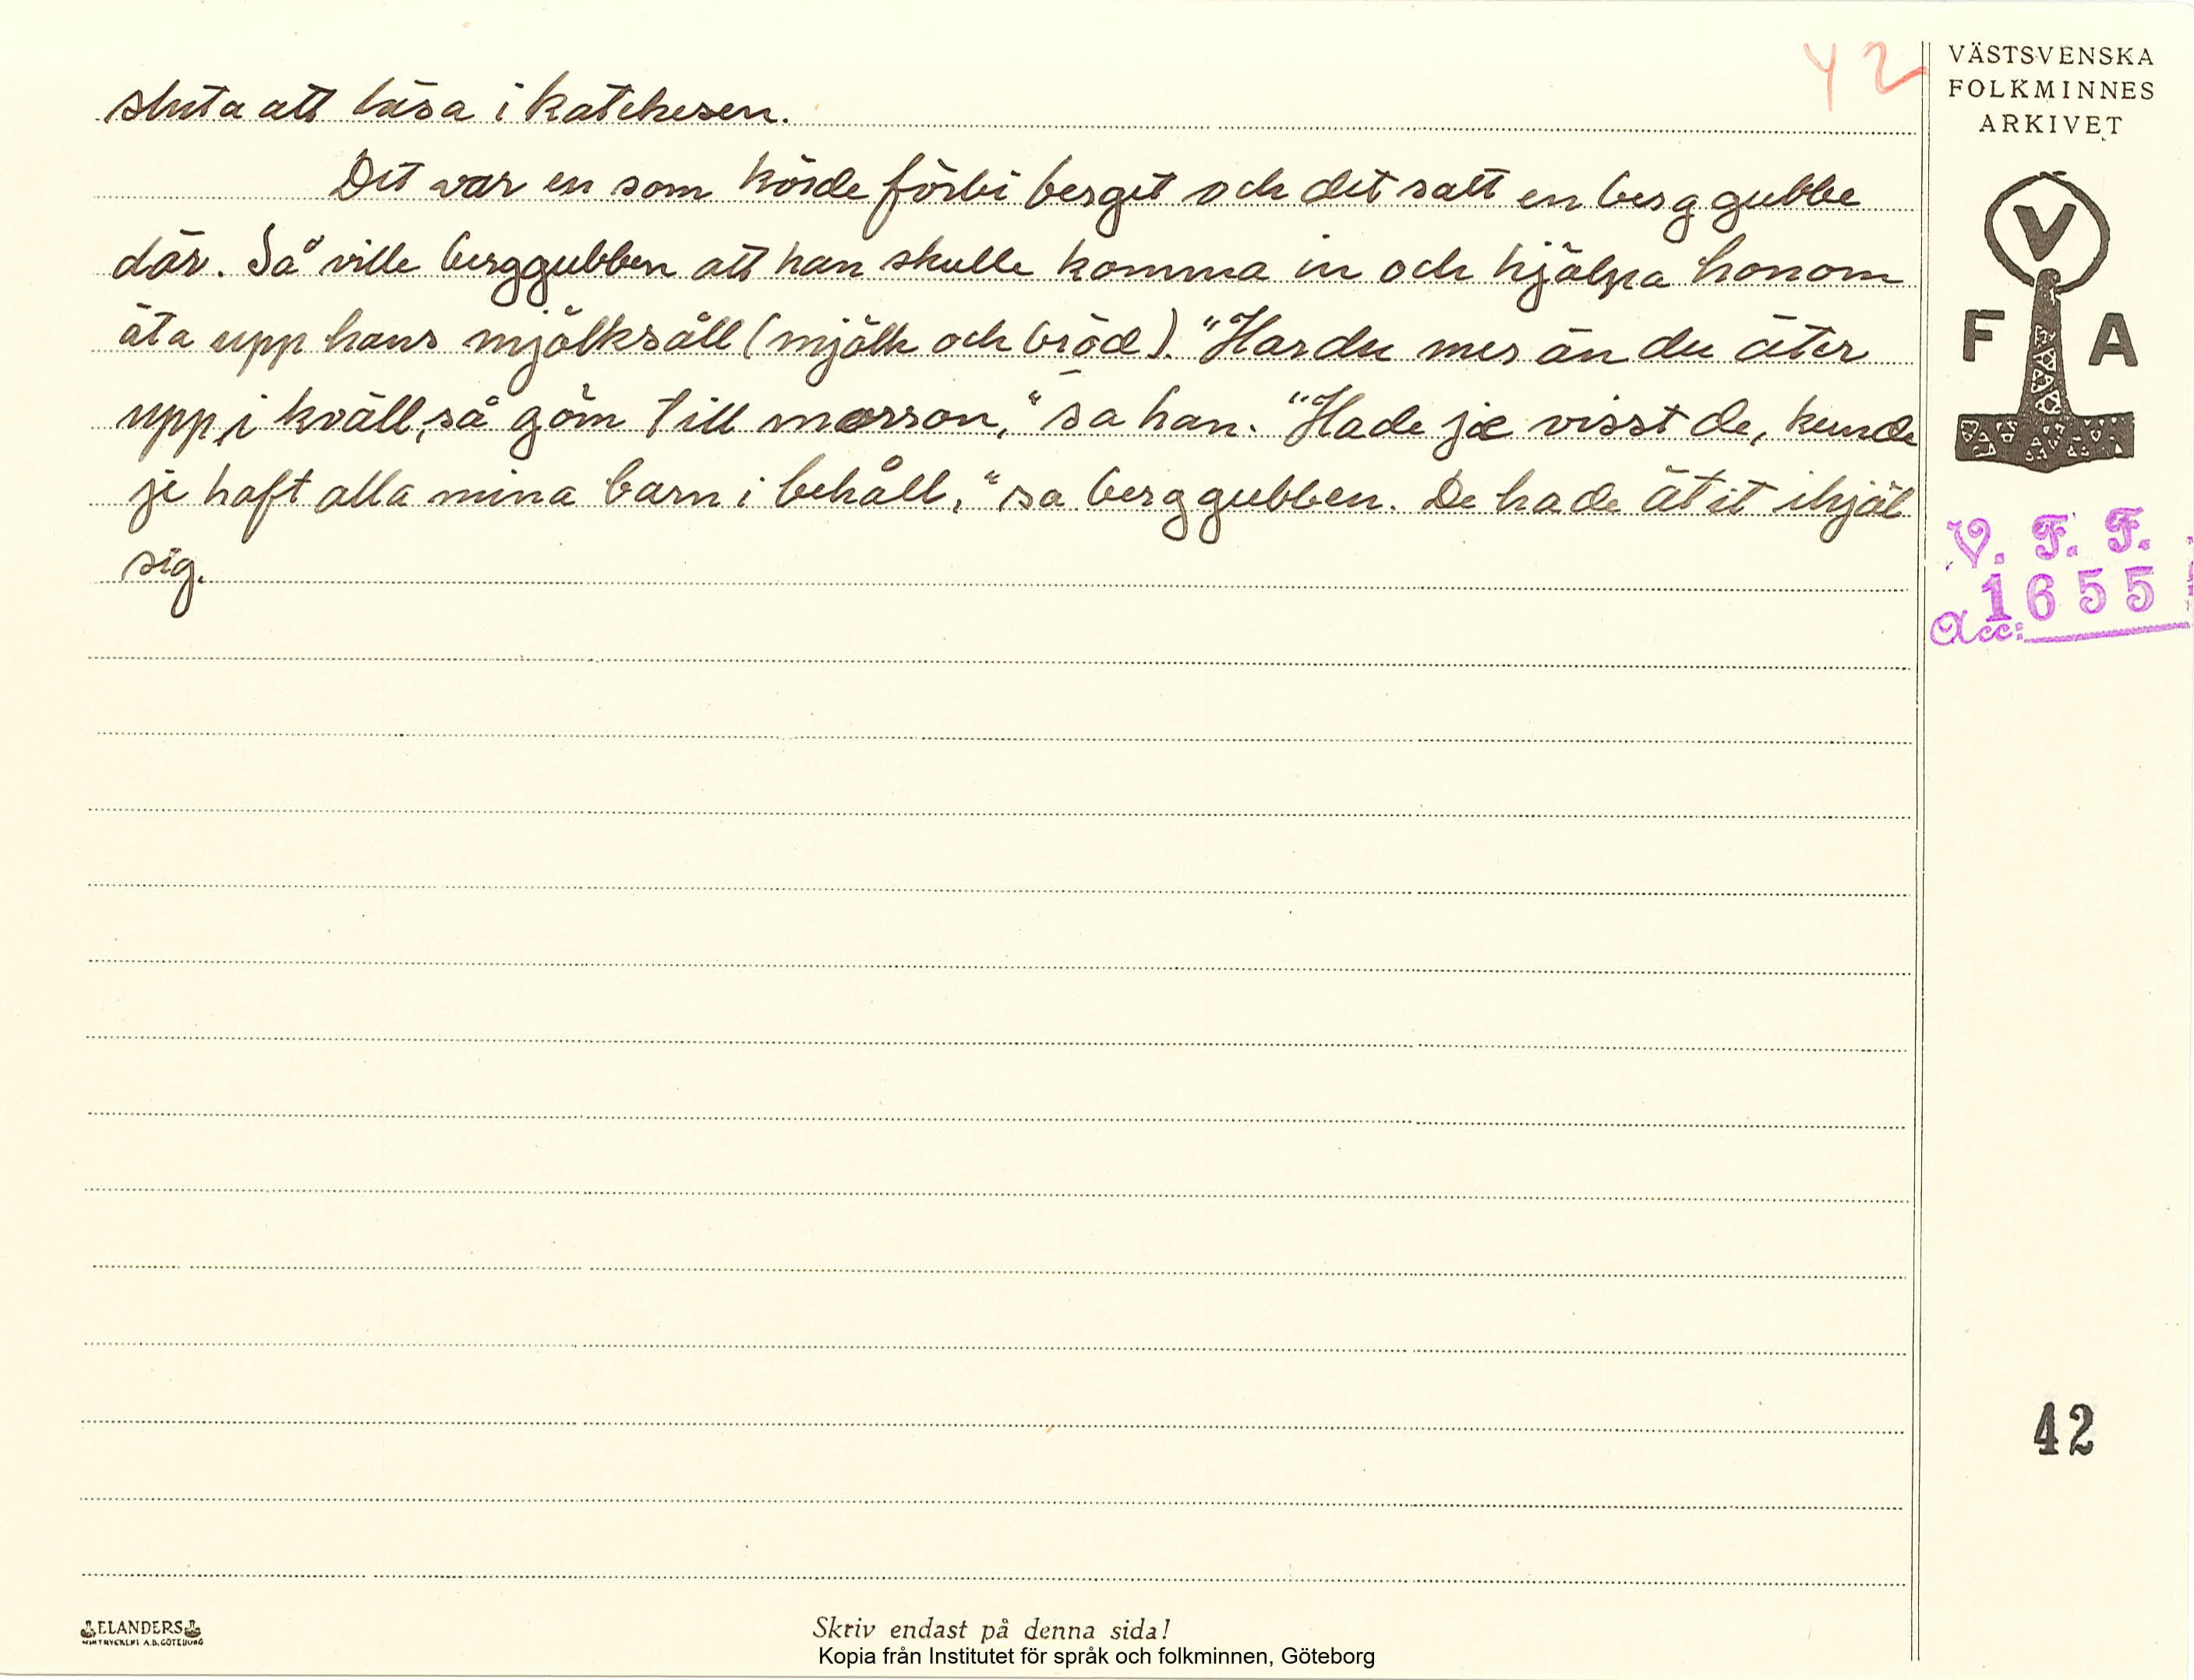 42
sluta att läsa i katekesen.
Det var en som körde förbi berget och det satt en berggubbe
där. Så ville berggubben att han skulle komma in och hjälpa honom
äta upp hans mjölksåll (mjölk och bröd). "Har du mer än du äter
upp i kväll, så göm till morson," sa han. "Hade je visst de, kunde
je haft alla mina barn i behåll," sa berggubben. De hade ätit ihjäl
sig.
VÄSTSVENSKA
FOLKMINNES
ARKIVET
V
F A
V. F. F.
1655
Acc:
42
ELANDERS
BOKTRYCKERI A.B. GÖTEBORG
Skriv endast på denna sida!
Kopia från Institutet för språk och folkminnen, Göteborg